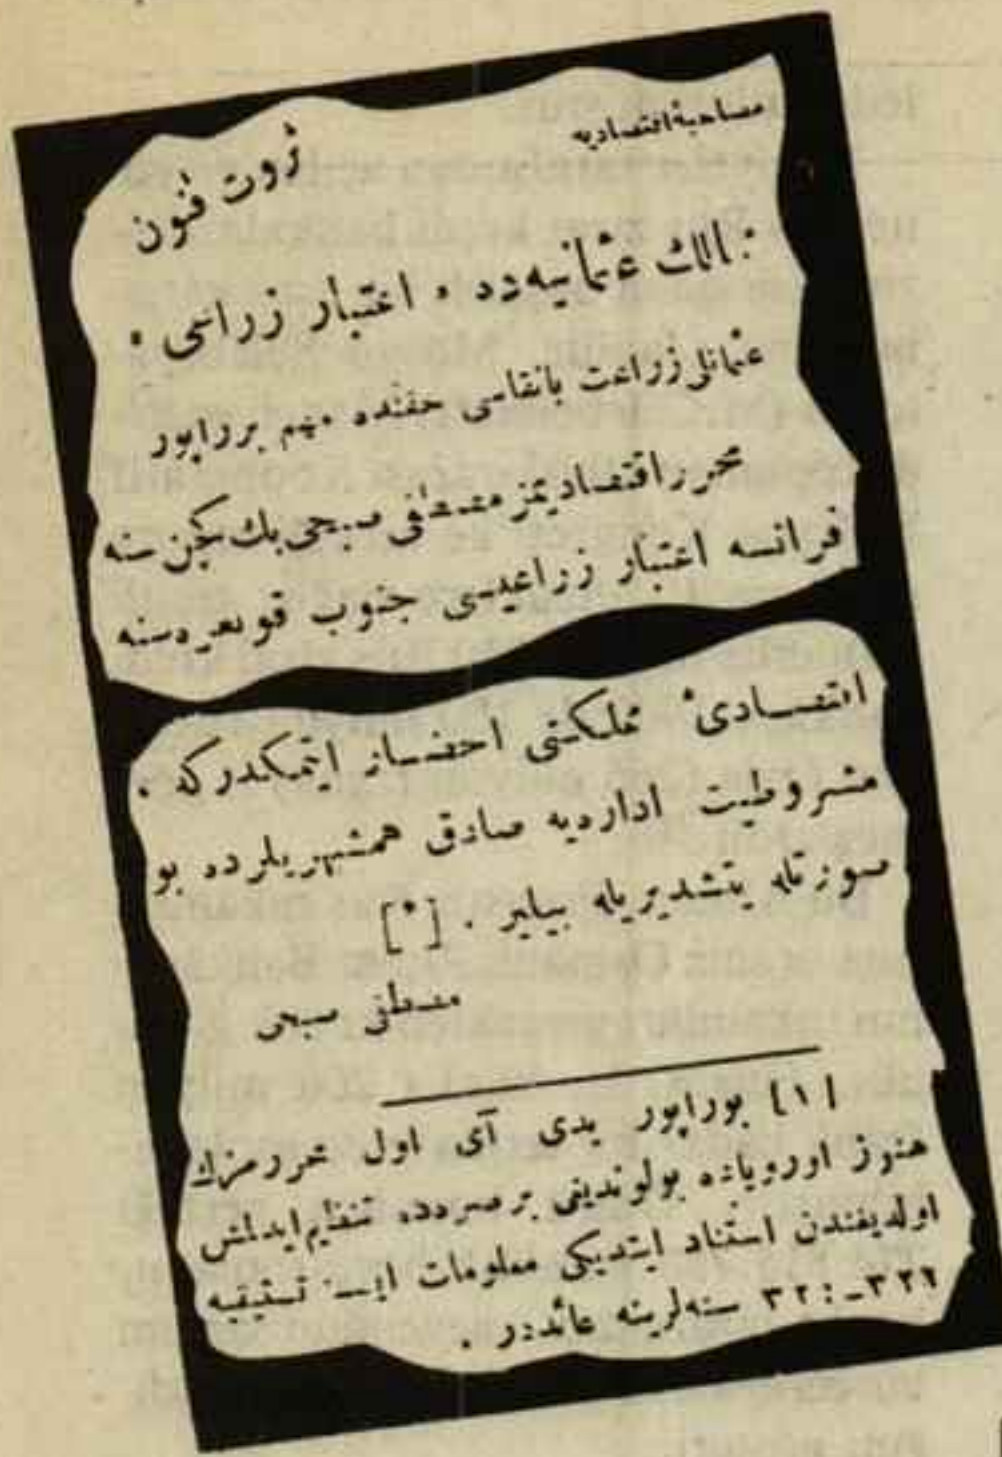 مصاحبۀ اقتصادیه
ثروت فنون
ممالك عثمانیه‌ده • اعتبار زراعی •
عثمانلی زراعت بانقاسی حقنده مهم بر راپور
محرر اقتصادیمز مصطفی صبحی بك كچن سنه
فرانسه اعتبار زراعیسی جنوب
اقتصادیٔ مملكتی احضار ایتمكدركه .
مشروطیت اداره‌یه صادق همشهریلرده بو
صورتله یتشدیریله بیلیر . [*]
مصطفی صبحی
[١] بوراپور یدی آی اول محررمزك
هنوز اوروپاده بولوندیغی برصره‌ده تنظیم ایدلمش
اولدیغندن استناد ایتدیكی معلومات
سنه‌لرینه عائددر .